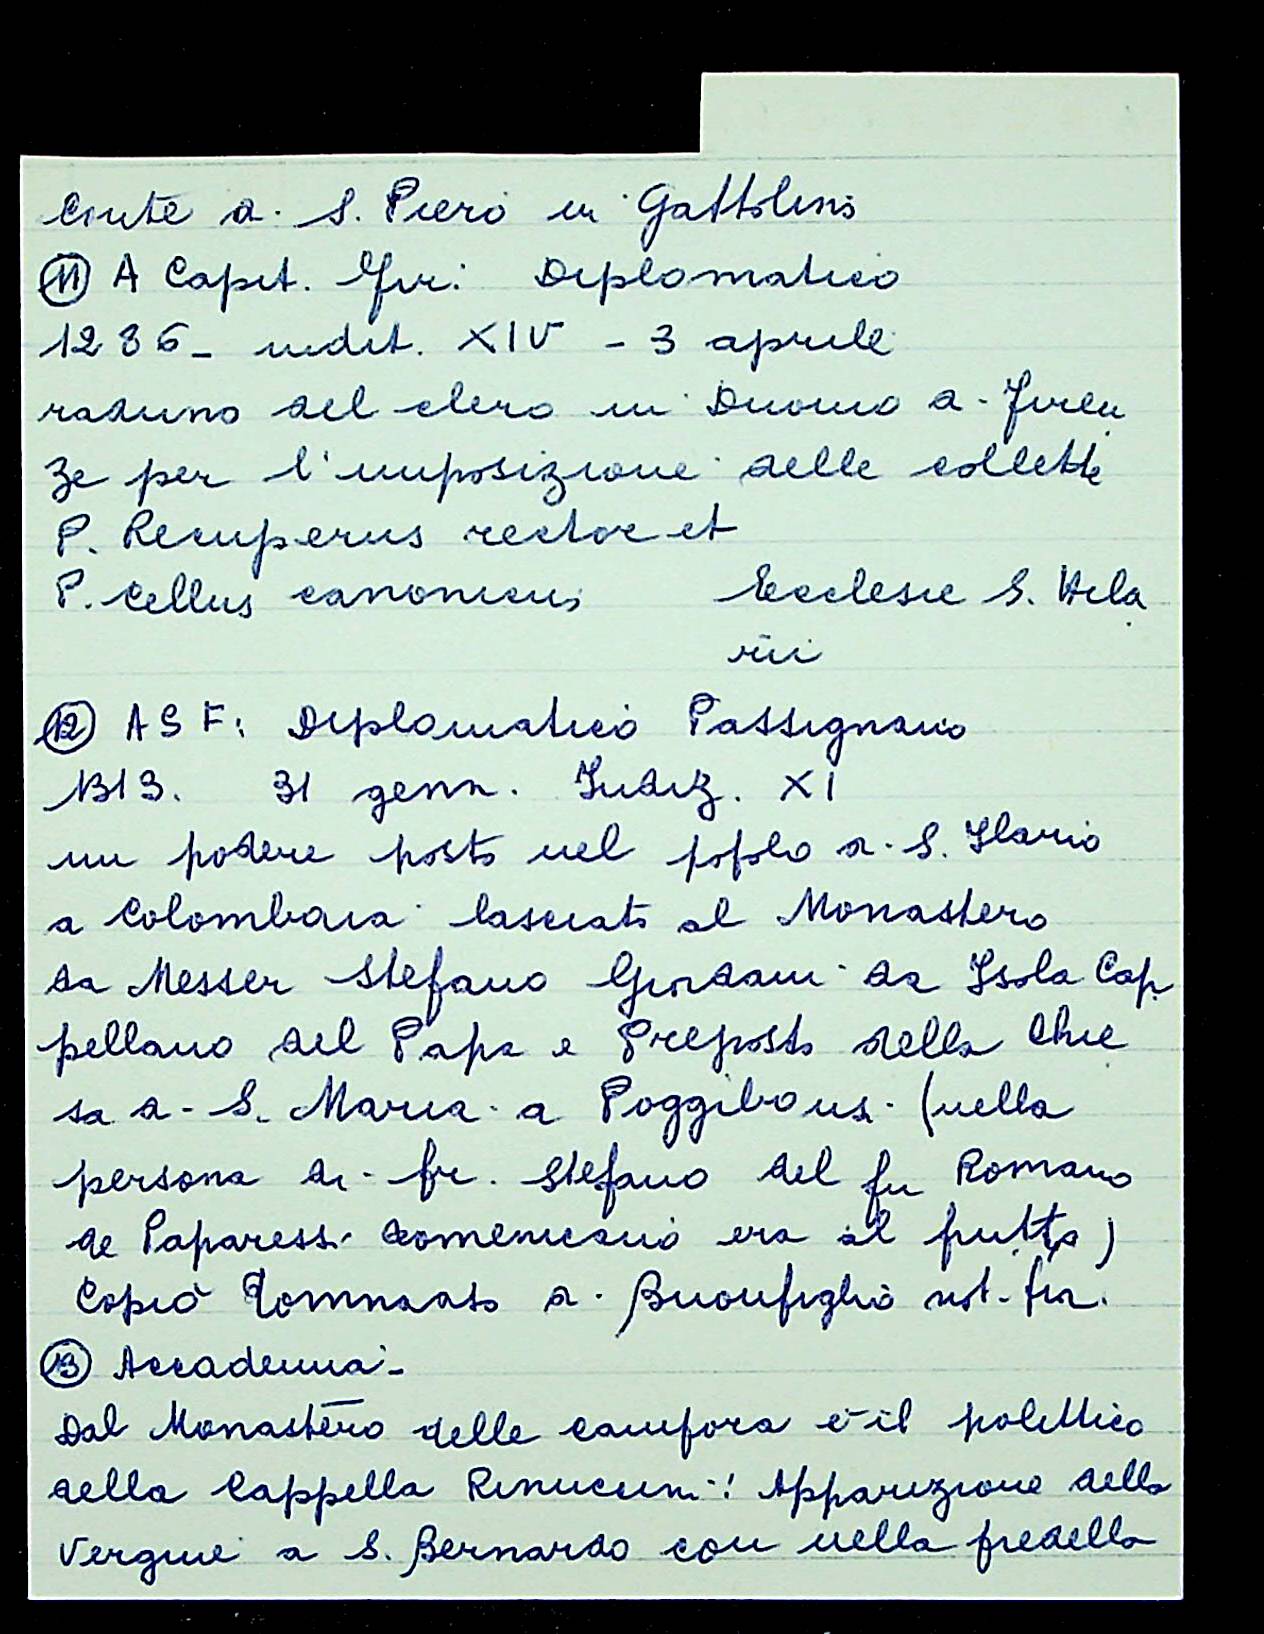 Conte a. S. Piero in Gattolino
⑪ A Capit. Fir: Diplomatico
1286- indit. XIV - 3 aprile
raduno del clero in Duomo a. Firen
ze per l'imposizione delle collette
P. Recuperus rector et
P. Cellus canonicus Ecclesie S. Hila
rii
⑫ ASF: Diplomatico Passignano
1313. 31 genn. Indiz. XI
un podere posto nel popolo a. S. Ilario
a Colombaia lasciato al Monastero
da Messer Stefano Giordani da Isola Cap
pellano del Papa e Preposto della Chie
sa a. S. Maria a Poggibonsi (nella
persona di fr. Stefano del fu Romano
de Paparessi domenicano era il frutto)
Copiò a. Buonfiglio not. fior.
⑬ Accademia-
Dal Monastero delle campora è il polittico
della Cappella Rinuccini: Apparizione della
Vergine a S. Bernardo con nella predella